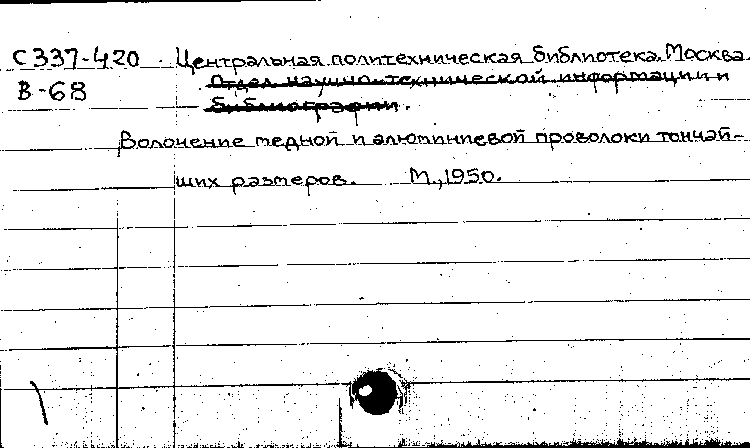 С337-420 Центральная политехническая библиотека. Москва.
В-68 Отдел научно-технической информации и
библиографии.
Волочение медной и алюминиевой проволоки тончай-
ших размеров. М., 1950.